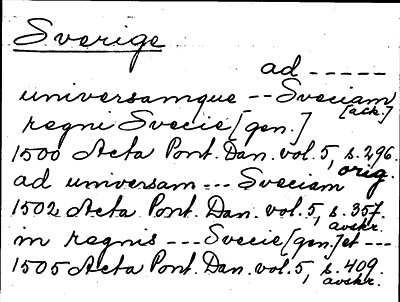 Sverige
ad -----
universamque -- Sveciam
[ack.]
regni Svecie [gen.]
1500 Acta Pont. Dan. vol. 5, s. 296.
orig.
ad universam --- Sveciam
1502 Acta Pont. Dan. vol. 5, s. 357.
avskr.
in regnis --- Svecie [gen.] et ---
1505 Acta Pont. Dan. vol. 5, s. 409.
avskr.